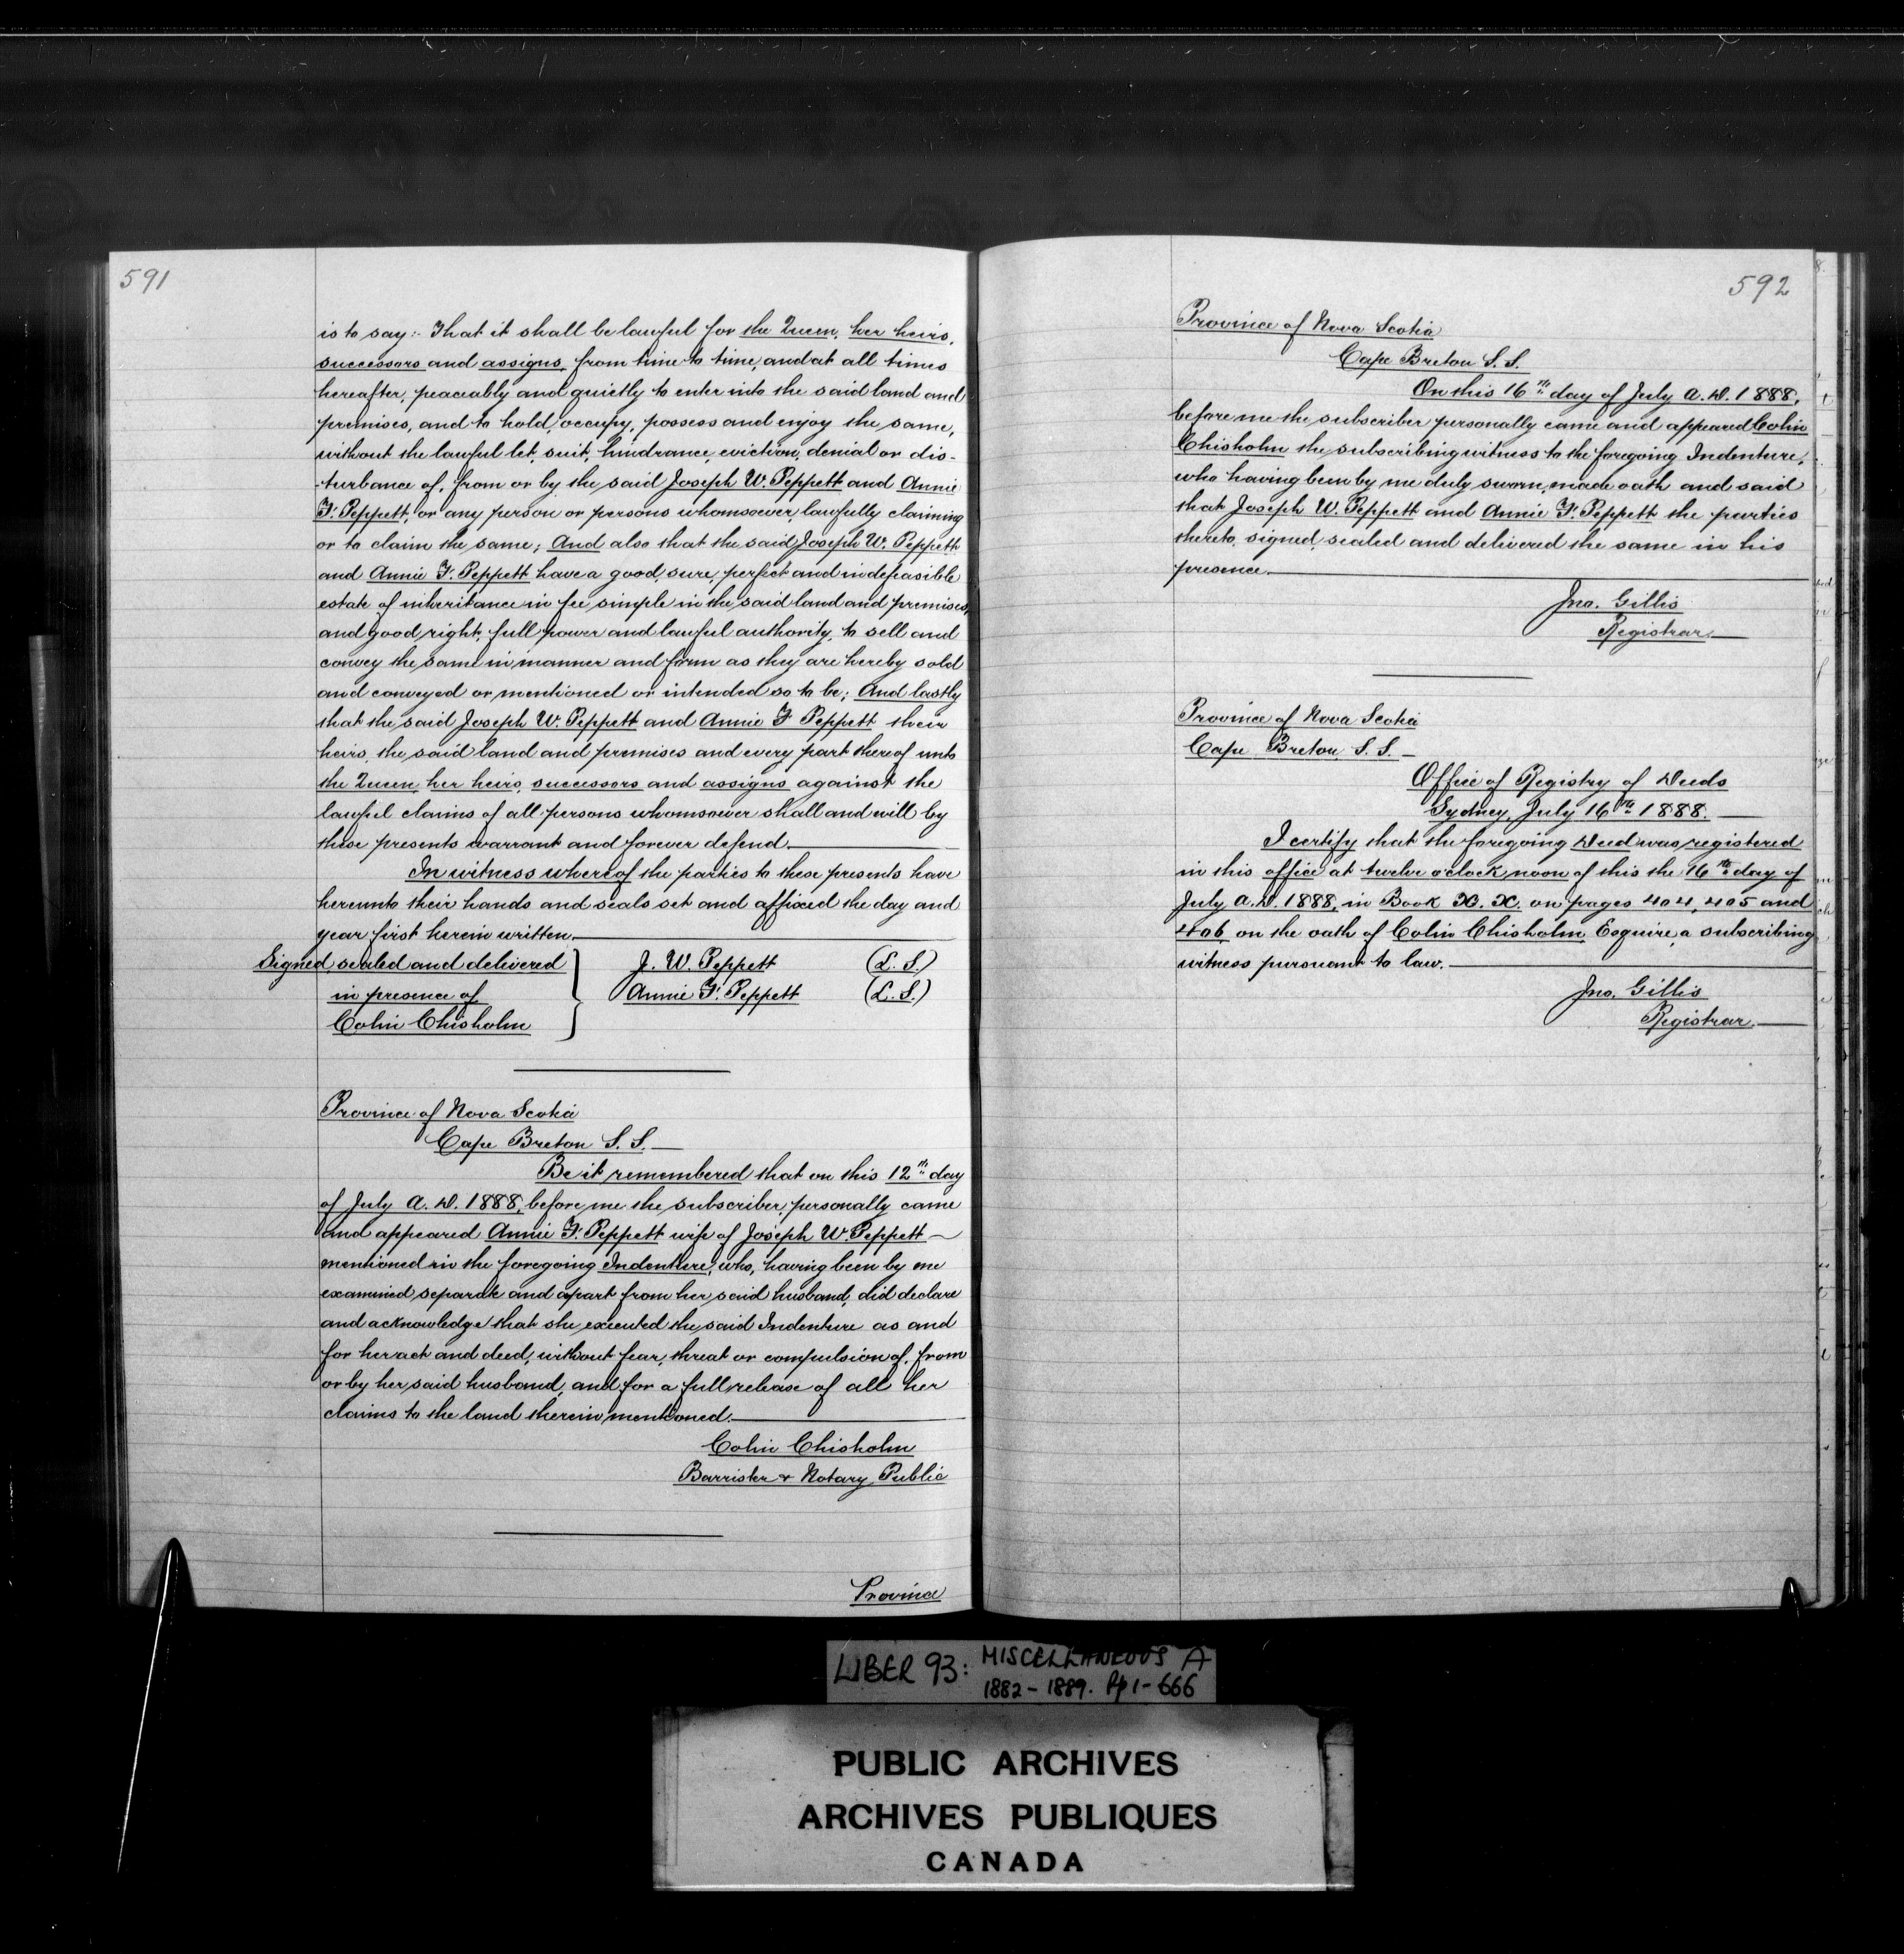 591
is to say:- That it shall be lawful for the Queen, her heirs,
successors and assigns, from time to time, and at all times
hereafter, peaceably and quietly to enter into the said land and
premises, and to hold, occupy, possess and enjoy the same,
without the lawful let, suit, hindrance, eviction, denial or dis-
-turbance of, from or by the said Joseph W. Peppett and Annie
F. Peppett, or any person or persons whomsoever, lawfully claiming
or to claim the same; And also that the said Joseph W. Peppett
and Annie F. Peppett have a good, sure, perfect and indefeasible
estate of inheritance in fee simple in the said land and premises,
and good right, full power and lawful authority, to sell and
convey the same in manner and form as they are hereby sold
and conveyed or mentioned or intended so to be; And lastly
that the said Joseph W. Peppett and Annie F Peppett their
heirs, the said land and premises and every part thereof unto
the Queen, her heirs, successors and assigns against the
lawful claims of all persons whomsoever shall and will by
these presents warrant and forever defend.
In witness whereof the parties to these presents have
hereunto their hands and seals set and affixed the day and
year first herein written.
Signed sealed and delivered } J. W. Peppett (L. S.)
in presence of Annie F. Peppett (L. S.)
Colin Chisholm
Province of Nova Scotia
Cape Breton S. S.
Be it remembered that on this 12th day
of July A. D. 1888, before me the subscriber, personally came
and appeared Annie F. Peppett wife of Joseph W. Peppett
mentioned in the foregoing Indenture, who, having been by me
examined separate and apart from her said husband, did declare
and acknowledge that she executed the said Indenture as and
for her act and deed, without fear, threat or compulsion of, from
or by her said husband, and for a full release of all her
claims to the land therein mentioned.
Colin Chisholm
Barrister & Notary Public
Province
592
Province of Nova Scotia
Cape Breton S. S.
On this 16th day of July A. D. 1888,
before me the subscriber personally came and appeared Colin
Chisholm the subscribing witness to the foregoing Indenture,
who having been by me duly sworn, made oath and said
that Joseph W. Peppett and Annie F. Peppett the parties
thereto, signed, sealed and delivered the same in his
presence.
Jno. Gillis
Registrar.
Province of Nova Scotia
Cape Breton, S. S.
Office of Registry of Deeds
Sydney, July 16th 1888.
I certify that the foregoing Deed was registered
in this office at twelve o'clock noon of this the 16th day of
July A. D. 1888, in Book X. X. on pages 404, 405 and
406 on the oath of Colin Chisholm, Esquire, a subscribing
witness pursuant to law.
Jno. Gillis
Registrar.
LIBER 93: MISCELLANEOUS A
1882 - 1889. Pp 1 - 666
PUBLIC ARCHIVES
ARCHIVES PUBLIQUES
CANADA